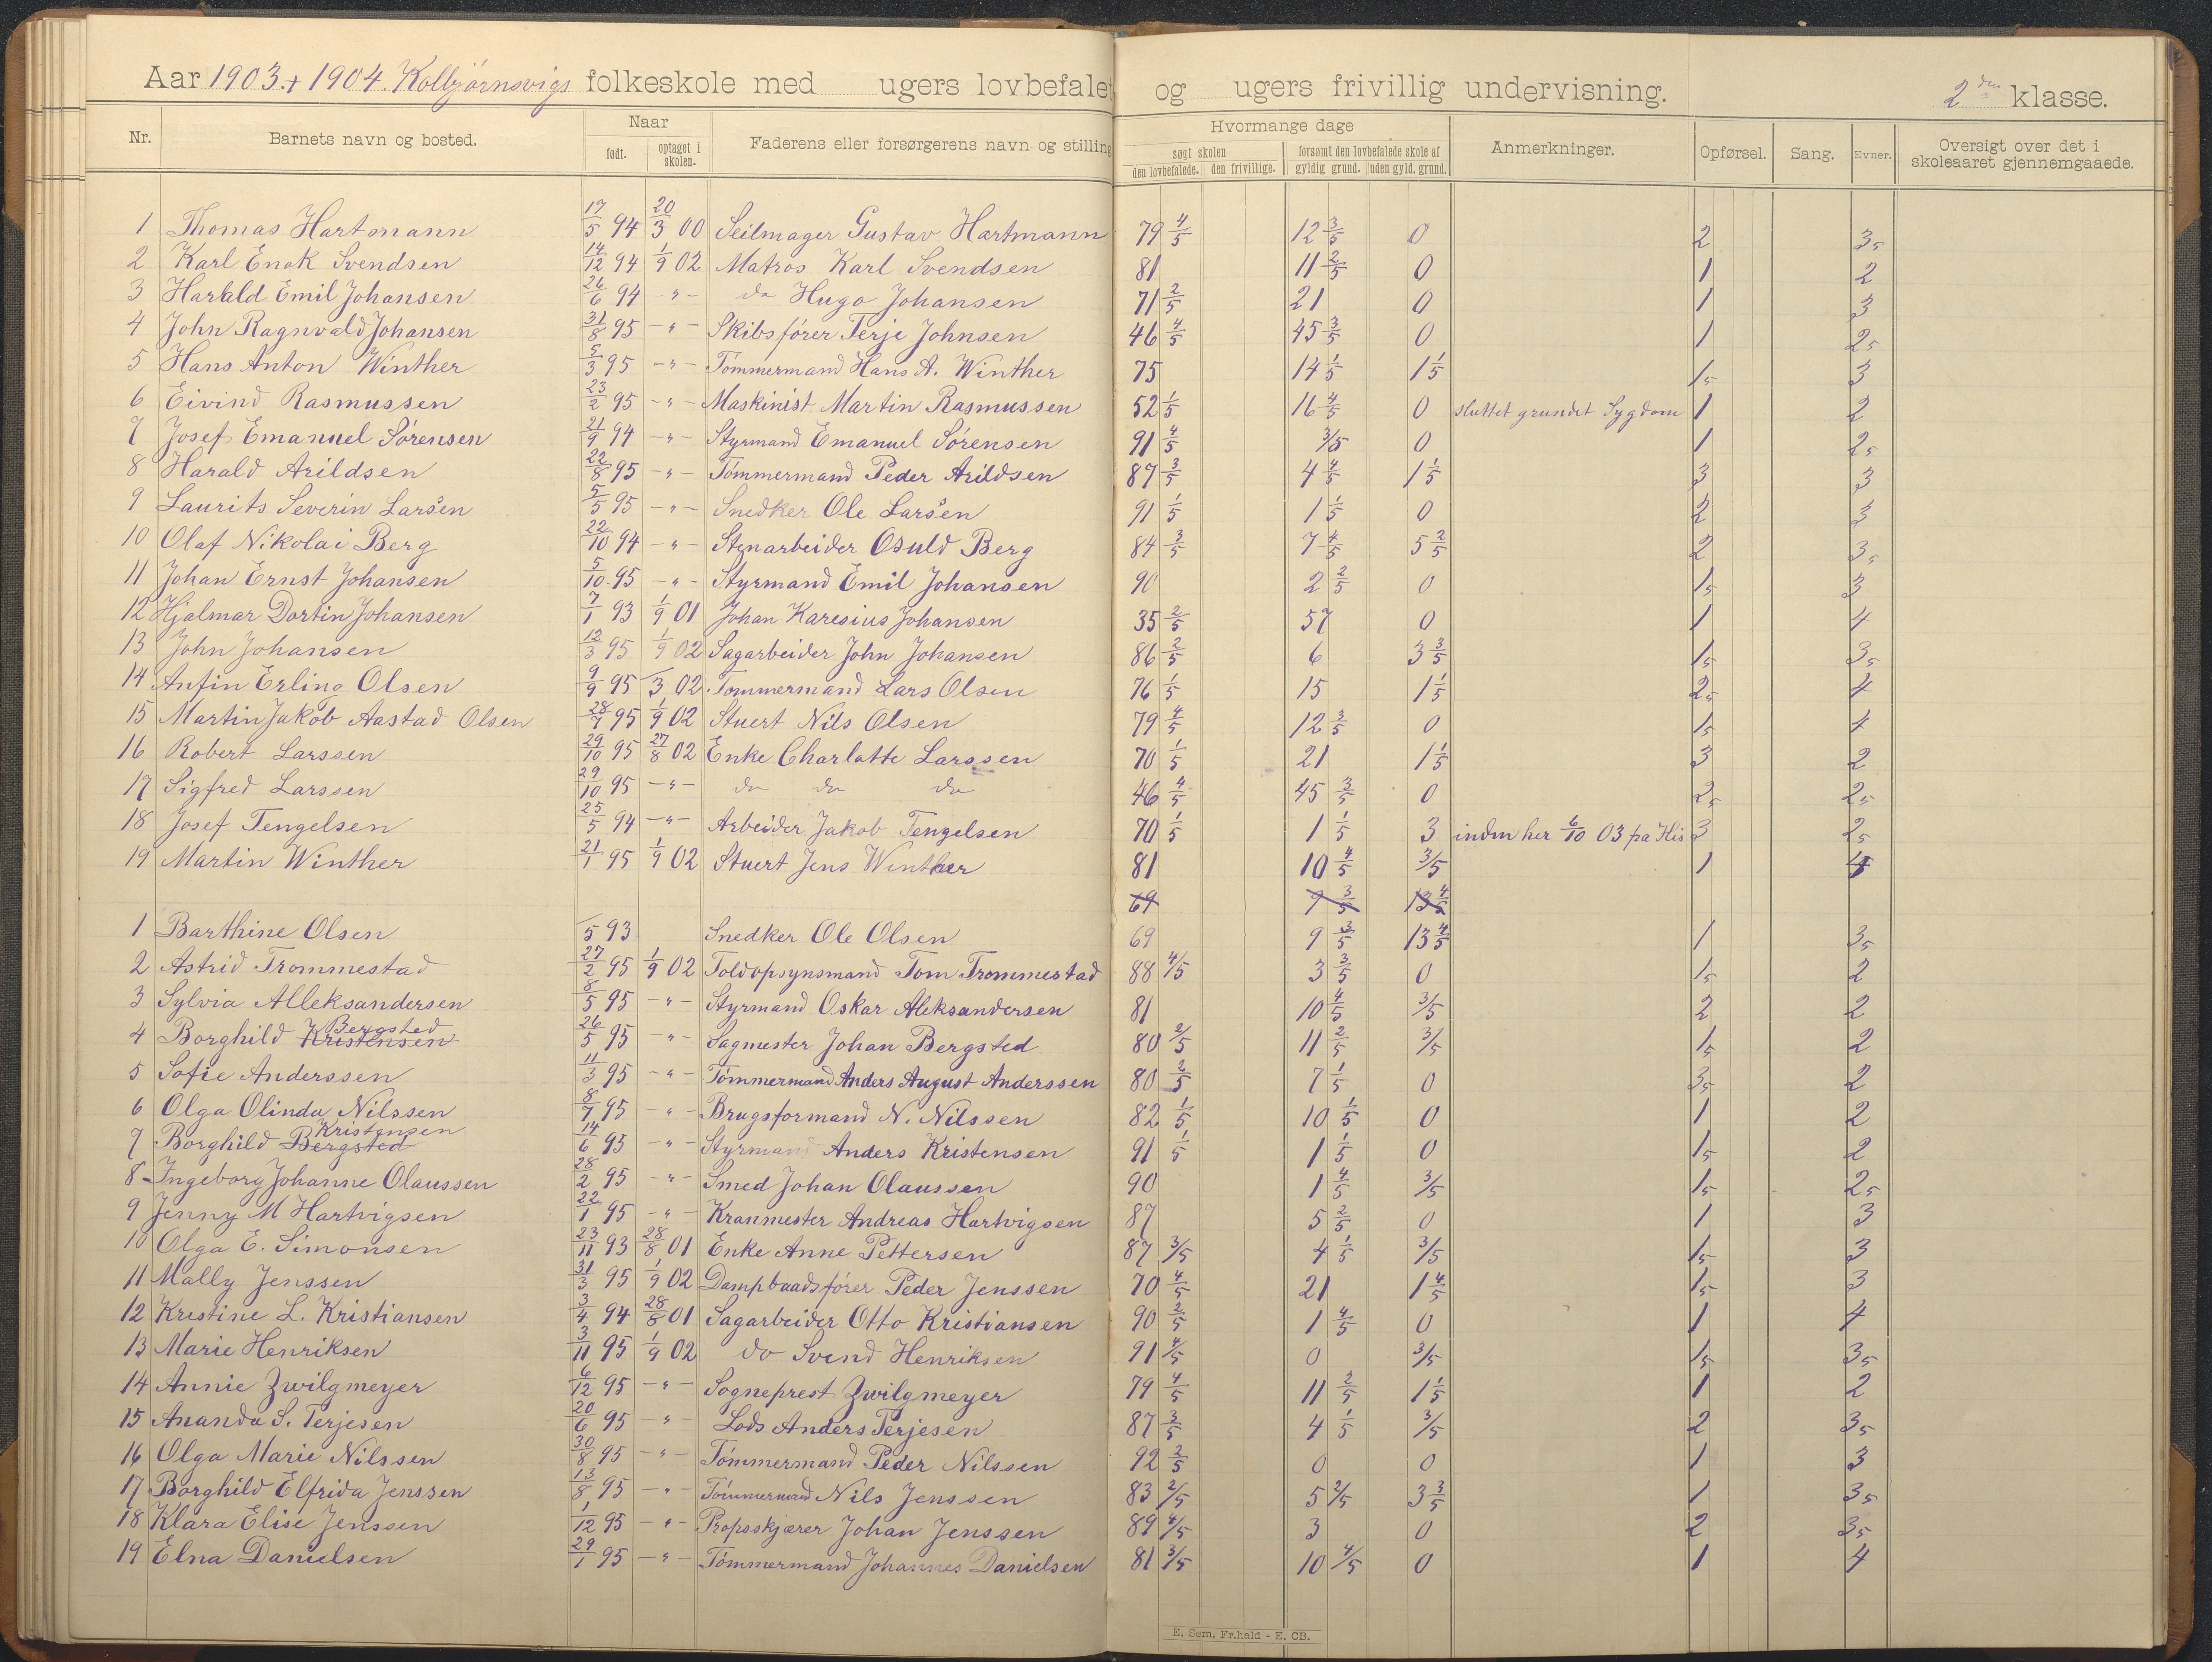 Aar 1903 + 1904. Kolbjørnsvigs folkeskole med ugers lovbefalet og ugers frivillig undervisning. 2den klasse.
Nr. Barnets navn og bosted. Naar født. optaget i skolen. Faderens eller forsørgerens navn og stilling Hvormange dage søgt skolen den lovbefalede. den frivillige. forsømt den lovbefalede skole af gyldig grund. uden gyld. grund. Anmerkninger. Opførsel. Sang. Evner. Oversigt over det i skoleaaret gjennemgaaede.
1 Thomas Hartmann 17/5 94 20/3 00 Seilmager Gustav Hartmann 79 4/5 12 3/5 0 2 3,5
2 Karl Enok Svendsen 14/12 94 1/9 02 Matros Karl Svendsen 81 11 2/5 0 1 2
3 Harald Emil Johansen 26/6 94 -"- do Hugo Johansen 71 2/5 21 0 1 3
4 John Ragnvald Johansen 31/8 95 -"- Skibsfører Terje Johnsen 46 4/5 45 3/5 0 1 2,5
5 Hans Anton Winther 5/3 95 -"- Tømmermand Hans A. Winther 75 14 1/5 1 1/5 1,5 3
6 Eivind Rasmussen 23/2 95 -"- Maskinist Martin Rasmussen 52 1/5 16 4/5 0 sluttet grundet Sygdom 1 2
7 Josef Emanuel Sørensen 21/9 94 -"- Styrmand Emanuel Sørensen 91 4/5 3/5 0 1 2,5
8 Harald Arildsen 22/8 95 -"- Tømmermand Peder Arildsen 87 3/5 4 4/5 1 1/5 3 3
9 Laurits Severin Larsen 5/5 95 -"- Snedker Ole Larsen 91 1/5 1 1/5 0 2 3
10 Olaf Nikolai Berg 22/10 94 -"- Stenarbeider Osuld Berg 84 3/5 7 4/5 5 2/5 2 3,5
11 Johan Ernst Johansen 5/10 95 -"- Styrmand Emil Johansen 90 2 2/5 0 1,5 3
12 Hjalmar Dortin Johansen 7/1 93 1/9 01 Johan Karesius Johansen 35 2/5 57 0 1 4
13 John Johansen 12/3 95 1/9 02 Sagarbeider John Johansen 86 2/5 6 3 3/5 1,5 3,5
14 Anfin Erling Olsen 9/9 95 /3 02 Tømmermand Lars Olsen 76 1/5 15 1 1/5 2,5 4
15 Martin Jakob Aastad Olsen 28/7 95 1/9 02 Stuert Nils Olsen 79 4/5 12 3/5 0 1,5 4
16 Robert Larssen 29/10 95 27/8 02 Enke Charlotte Larssen 70 1/5 21 1 1/5 3 2
17 Sigfred Larssen 29/10 95 -"- do do do 46 4/5 45 3/5 0 2,5 2,5
18 Josef Tengelsen 25/5 94 -"- Arbeider Jakob Tengelsen 70 1/5 1 1/5 3 inden her 6/10 03 pa His 3 2,5
19 Martin Winther 21/1 95 1/9 02 Stuert Jens Winther 81 10 4/5 3/5 1 4
69 7 3/5 13 4/5
1 Barthine Olsen /5 93 Snedker Ole Olsen 69 9 3/5 13 4/5 1 3,5
2 Astrid Trommestad 27/2 95 1/9 02 Toldopsynsmand Tom Trommestad 88 4/5 3 3/5 0 1,5 2
3 Sylvia Alleksandersen 8/5 95 -"- Styrmand Oskar Aleksandersen 81 10 4/5 3/5 2 2
4 Borghild Kristensen Bergsted 26/5 95 -"- Sagmester Johan Bergsted 80 2/5 11 2/5 3/5 1,5 2
5 Sofie Anderssen 11/3 95 -"- Tømmermand Anders August Anderssen 80 2/5 7 1/5 0 3,5 2
6 Olga Olinda Nilssen 8/7 95 -"- Brugsformand N. Nilssen 82 1/5 10 1/5 0 1 2
7 Borghild Bergsted Kristensen 14/6 95 -"- Styrmand Anders Kristensen 91 1/5 1 1/5 0 1,5 2
8 Ingeborg Johanne Olaussen 28/2 95 -"- Smed Johan Olaussen 90 1 4/5 3/5 1,5 2,5
9 Jenny M Hartvigsen 22/1 95 -"- Kranmester Andreas Hartvigsen 87 5 2/5 0 1 3
10 Olga E. Simonsen 23/11 93 28/8 01 Enke Anne Pettersen 87 3/5 4 1/5 3/5 1,5 3
11 Mally Jenssen 31/3 95 1/9 02 Dampbaadsfører Peder Jenssen 70 4/5 21 1 4/5 1,5 3
12 Kristine L. Kristiansen 3/4 94 28/8 01 Sagarbeider Otto Kristiansen 90 2/5 1 4/5 0 1 4
13 Marie Henriksen 3/11 95 1/9 02 do Svend Henriksen 91 4/5 0 3/5 1,5 3,5
14 Annie Zwilgmeyer 6/12 95 -"- Sogneprest Zwilgmeyer 79 4/5 11 2/5 1 1/5 1 2
15 Ananda S. Terjesen 20/6 95 -"- Lods Anders Terjesen 87 3/5 4 1/5 3/5 2 3,5
16 Olga Marie Nilssen 30/8 95 -"- Tømmermand Peder Nilssen 92 2/5 0 0 1 3
17 Borghild Elfrida Jenssen 13/8 95 -"- Tømmermand Nils Jenssen 83 2/5 5 2/5 3 3/5 1 3,5
18 Klara Elise Jenssen 1/12 95 -"- Propsskjærer Johan Jenssen 89 4/5 3 0 2 3,5
19 Elna Danielsen 29/1 95 -"- Tømmermand Johannes Danielsen 81 3/5 10 4/5 0 1 4
E. Sem, Fr.hald - E. CB.